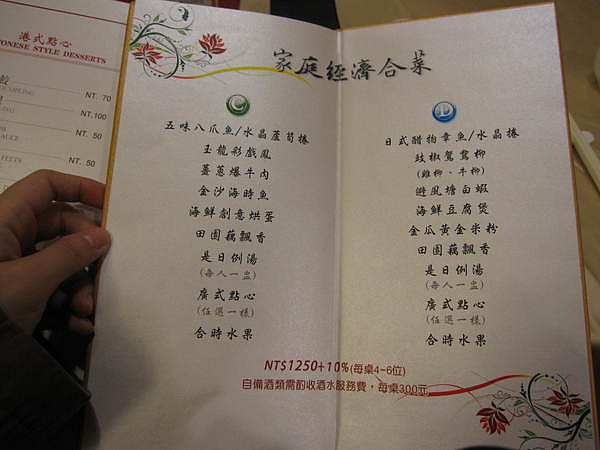 港式點心
ONESE STYLE DESSERTS
NT. 70
NT.100
NT. 50
NT. 50
家庭經濟合菜
C
五味八爪魚/水晶蘆筍捲
玉龍彩戲鳳
薑蔥爆牛肉
金沙海時魚
海鮮創意烘蛋
田園藕飄香
是日例湯
(每人一盅)
廣式點心
(任選一樣)
合時水果
D
日式醋物章魚/水晶捲
豉椒鴛鴦柳
(雞柳、牛柳)
避風塘白蝦
海鮮豆腐煲
金瓜黃金米粉
田園藕飄香
是日例湯
(每人一盅)
廣式點心
(任選一樣)
合時水果
NT$1250+10%(每桌4~6位)
自備酒類需酌收酒水服務費，每桌300元